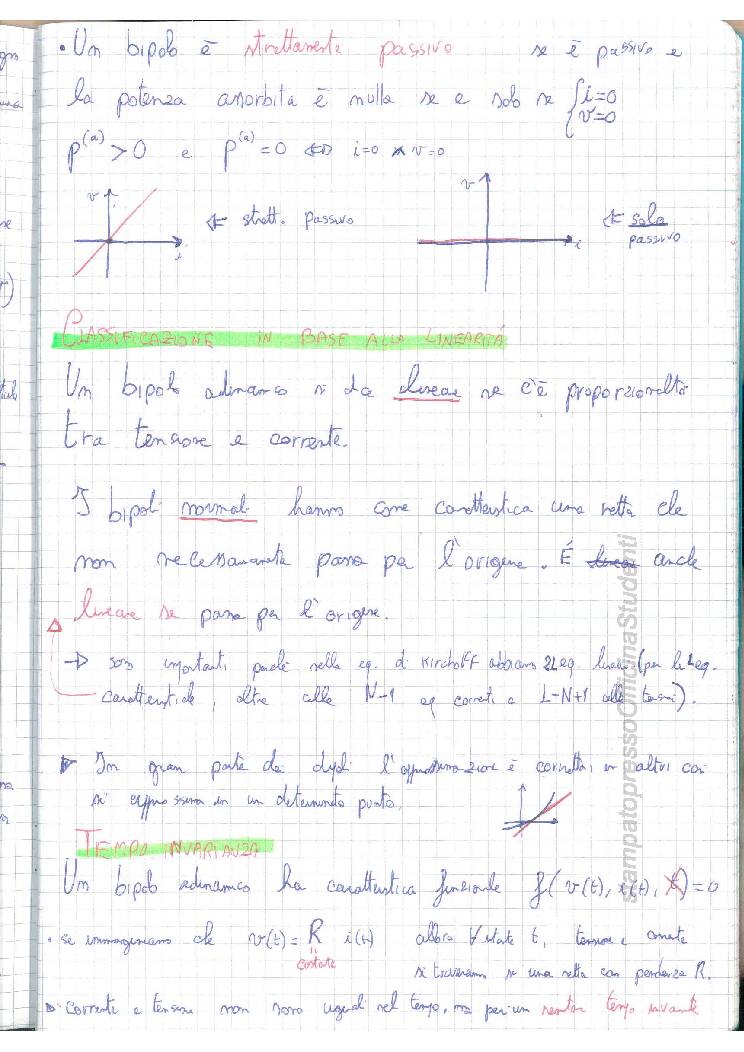 • Un bipolo è strettamente passivo se è passivo e
la potenza assorbita è nulla se e solo se { i=0
v=0
p(a) > 0 e p(a) = 0 ⇔ i=0 ∧ v=0
v
i
⇐ strett. passivo
v
i
⇐ solo
passivo
CLASSIFICAZIONE IN BASE ALLA LINEARITÁ
Un bipolo adinamico si dice lineare se c'è proporzionalità
tra tensione e corrente.
I bipoli normali hanno come caratteristica una retta che
non necessariamente passa per l'origine. É anche
lineare se passa per l'origine.
→ sono importanti perché nelle eq. di Kirchoff abbiamo 2L eq. lineari (per le L eq.
caratteristiche, oltre alle N-1 eq correnti e L-N+1 alle tensioni).
▶ In gran parte dei l'approssimazione è corretta, in altri casi
si approssima in un determinato punto.
TEMPO INVARIANZA
Un bipolo adinamico ha caratteristica funzionale f( v(t), i(t), t) = 0
• se immaginiamo che v(t) = R i(t) allora ∀ istante t, tensione e corrente
costante
si troveranno su una retta con pendenza R.
▷ Correnti e tensioni non sono uguali nel tempo, ma per un resistore tempo invariante
StampatopressoOfficinaStudenti